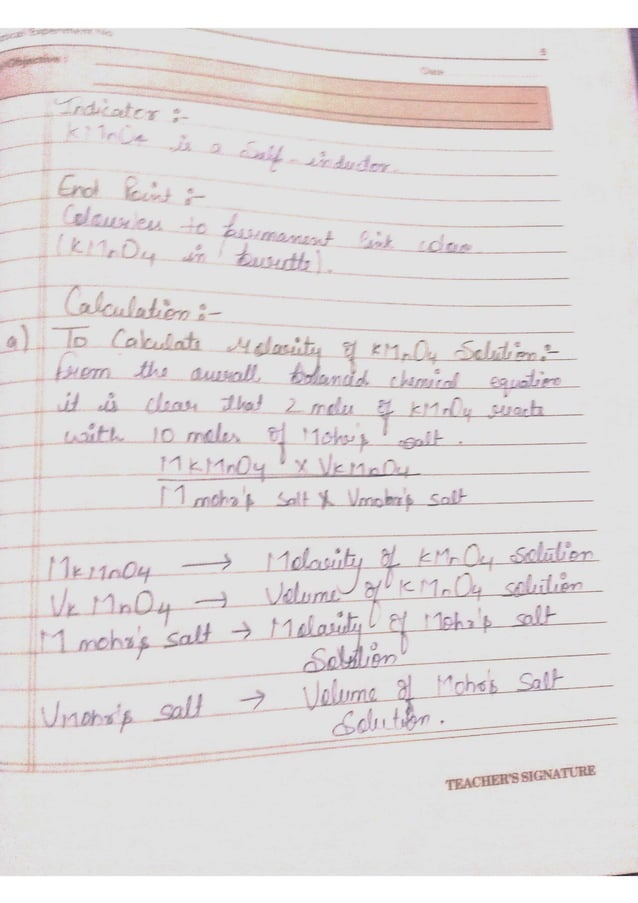 Experiment No
5
Objective :
Date
Indicator :-
KMnO4 is a Self-inductor.
End Point :-
Colourless to permanent Pink colour
(KMnO4 in burette).
Calculation :-
a) To Calculate Molarity of KMnO4 Solution:-
from the overall balanced chemical equation
it is clear that 2 moles of KMnO4 reacts
with 10 moles of Mohr's salt.
MKMnO4 x VKMnO4
M mohr's salt x Vmohr's salt
MKMnO4 → Molarity of KMnO4 solution
VKMnO4 → Volume of KMnO4 solution
M mohr's salt → Molarity of Mohr's salt
Solution
Vmohr's salt → Volume of Mohr's Salt
Solution.
TEACHER'S SIGNATURE